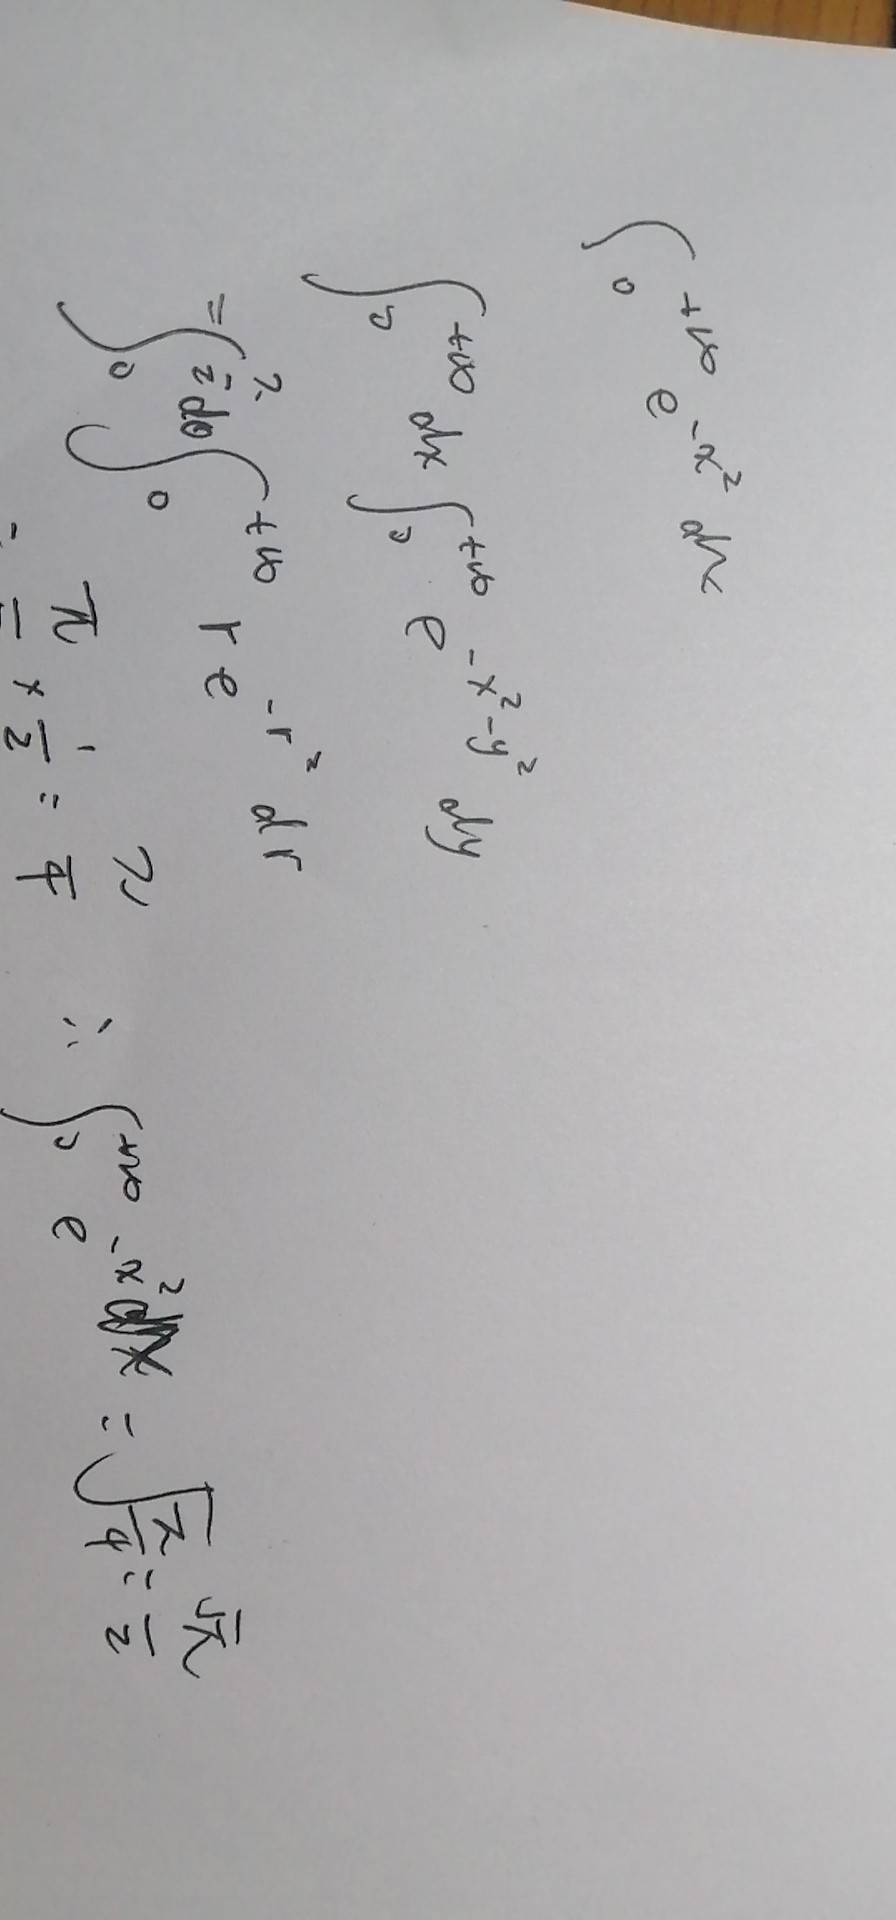 ∫₀^{+∞} e^{-x²} dx
∫₀^{+∞} dx ∫₀^{+∞} e^{-x²-y²} dy
= ∫₀^{π/2} dθ ∫₀^{+∞} r e^{-r²} dr
= π/2 × 1/2 = π/4 ∴ ∫₀^{+∞} e^{-x²} dx = √(π/4) = √π/2